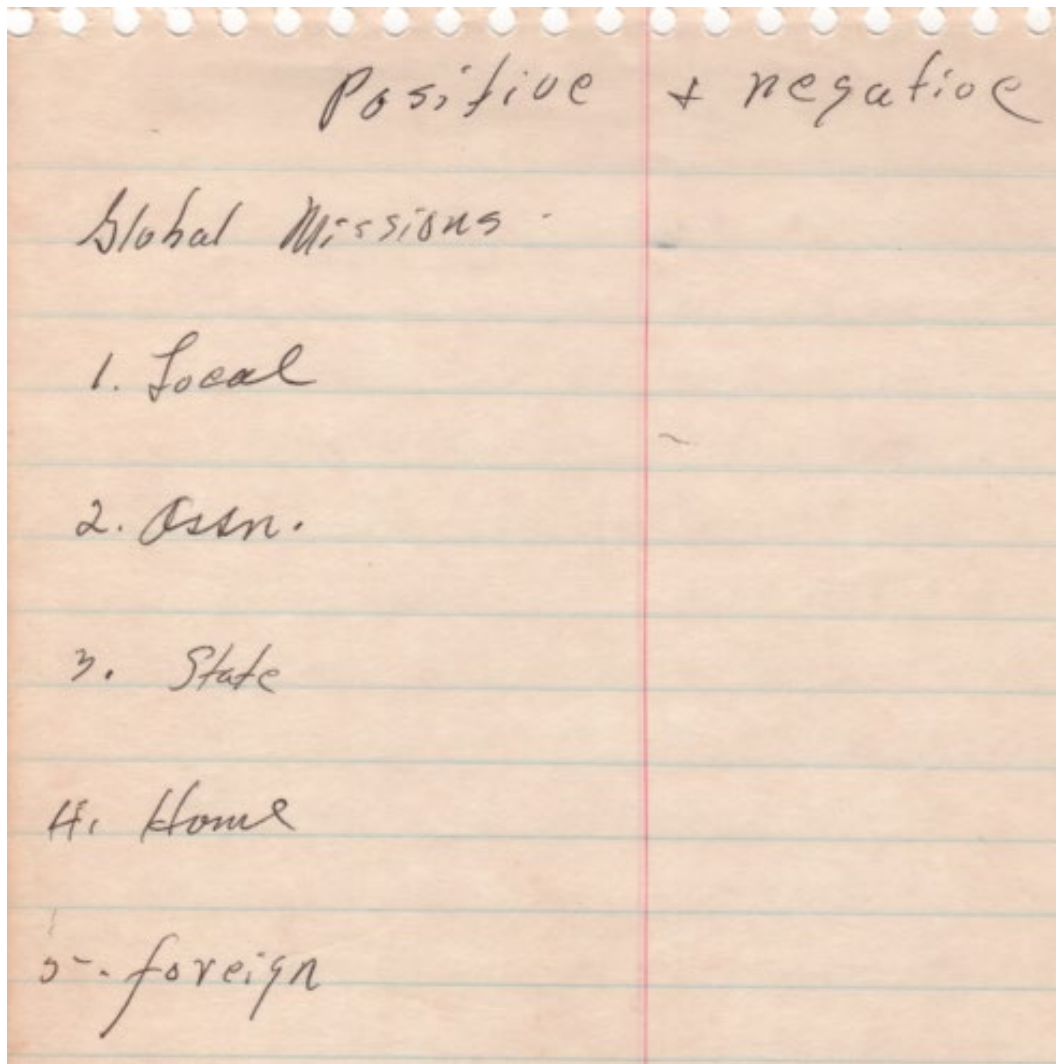 Positive + negative
Global Missions
1. Local
2. Assn.
3. State
4. Home
5. foreign